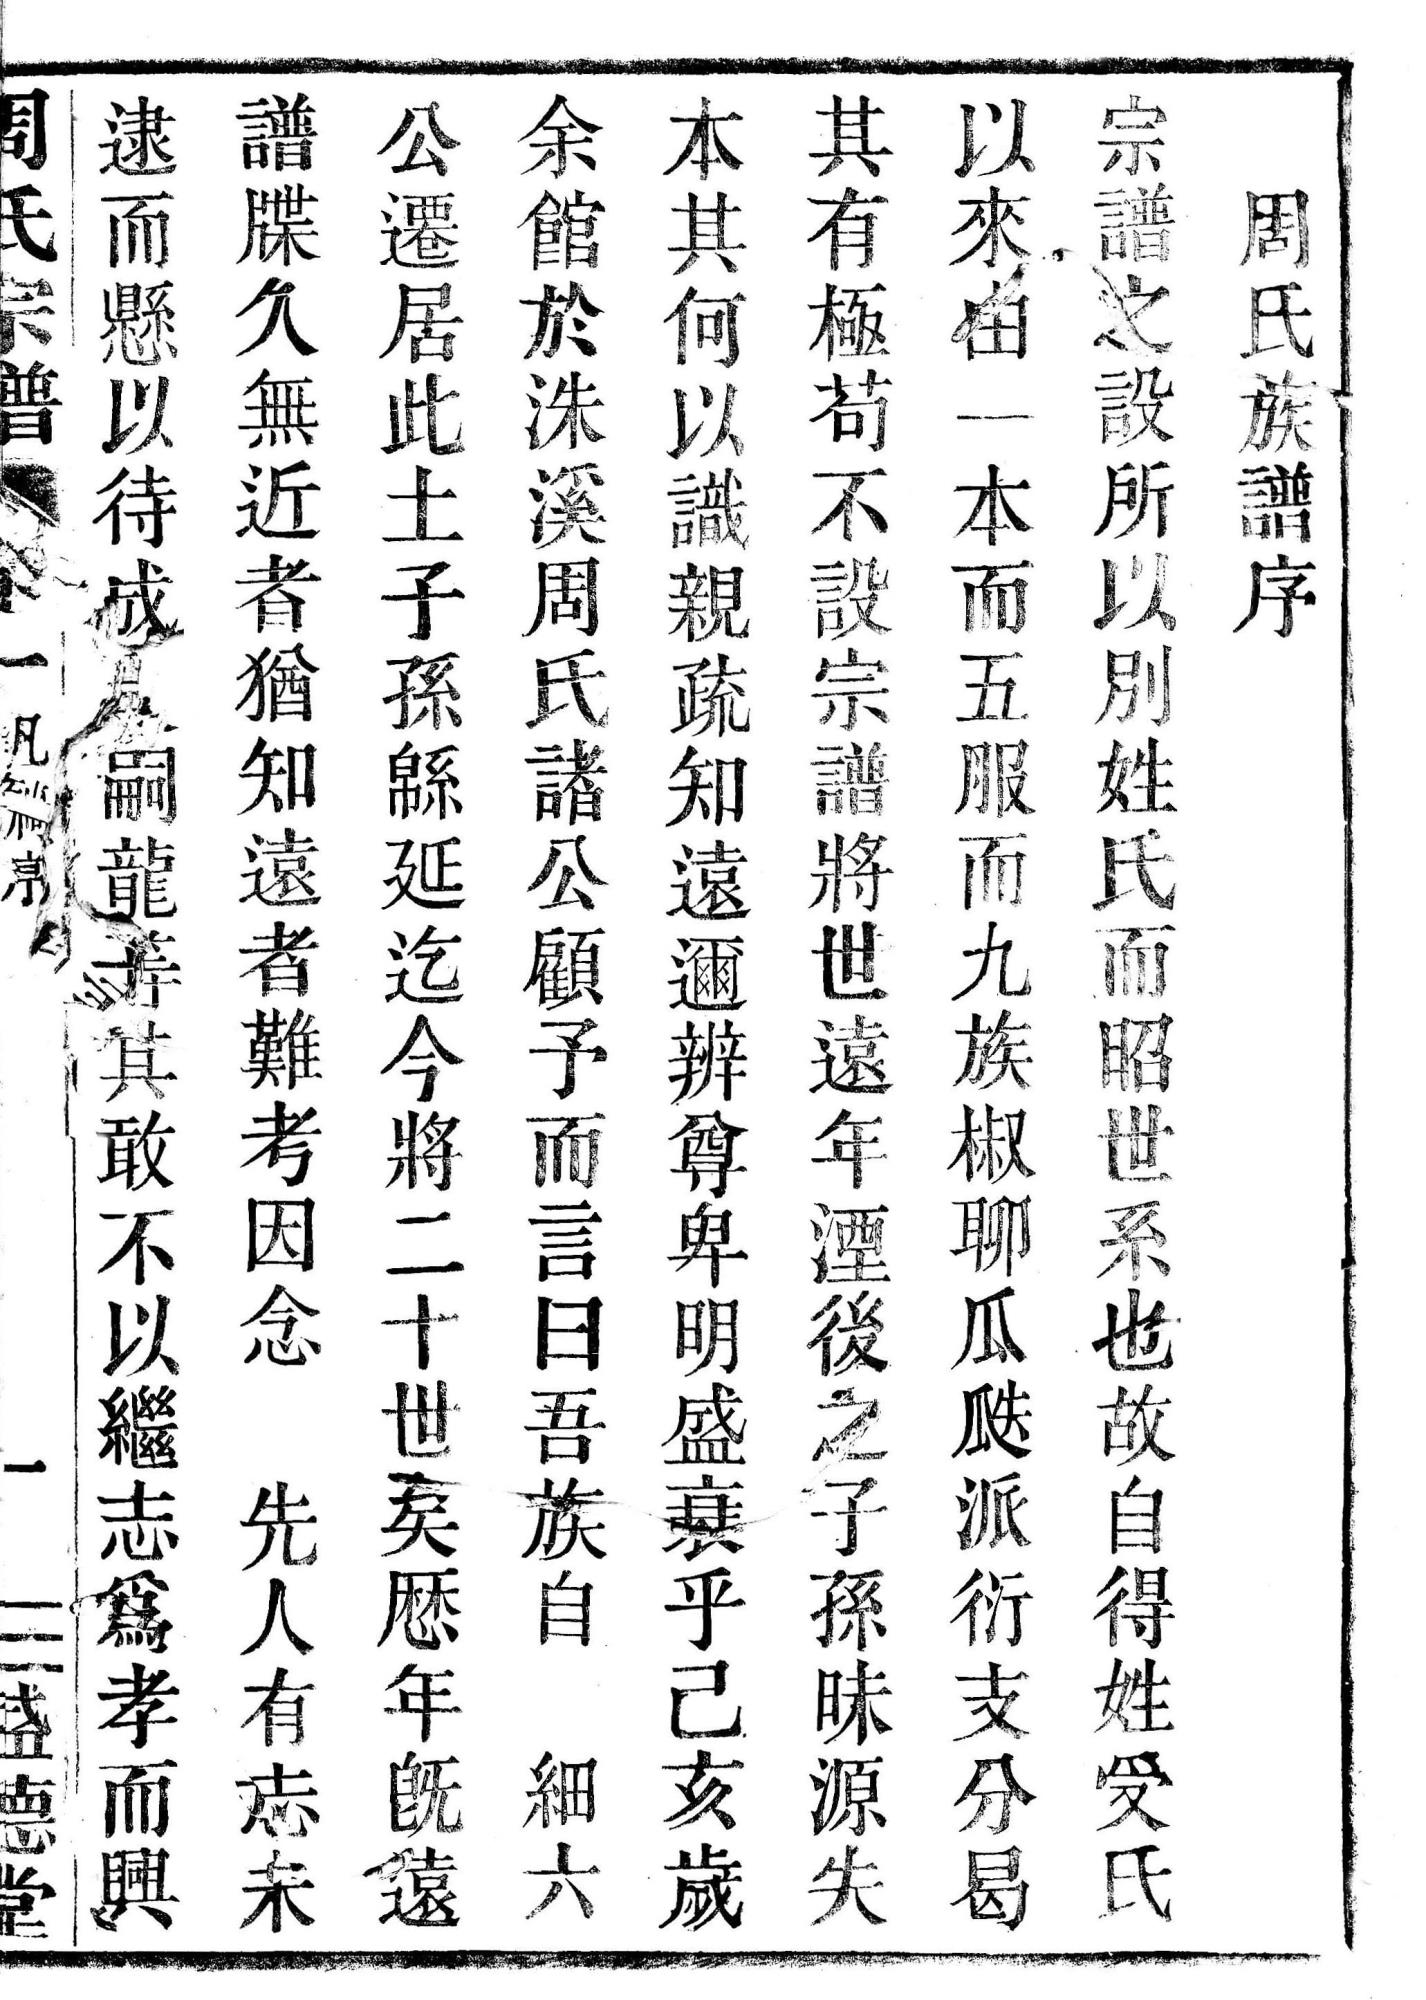 周氏族譜序
宗譜之設所以別姓氏而昭世系也故自得姓受氏
以來由一本而五服而九族椒聊瓜瓞派衍支分曷
其有極苟不設宗譜將世遠年湮後之子孫昧源失
本其何以識親疏知遠邇辨尊卑明盛衰乎己亥歲
余館於洙溪周氏諸公顧予而言曰吾族自 細六
公遷居此土子孫緜延迄今將二十世矣歴年旣遠
譜牒久無近者猶知遠者難考因念 先人有志未
逮而懸以待成 嗣龍等其敢不以繼志爲孝而興
周氏宗譜 卷一 凡 一 二 盛德堂